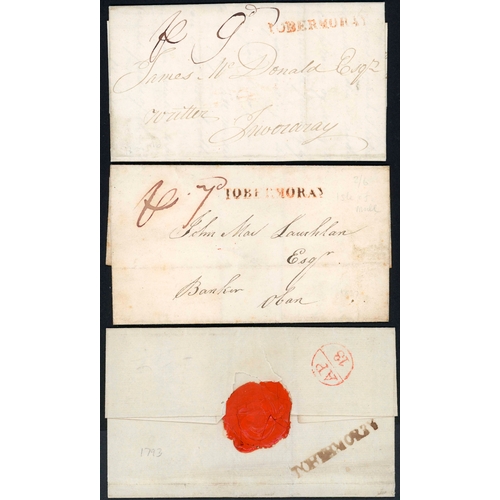 & 9d TOBERMORAY
James McDonald Esqr
writer
Inveraray
& 7d TOBERMORAY
7/6
Isle of
Mull
John Mac Lauchlan
Esqr
Banker Oban
AP 19
1793
TOBERMORY